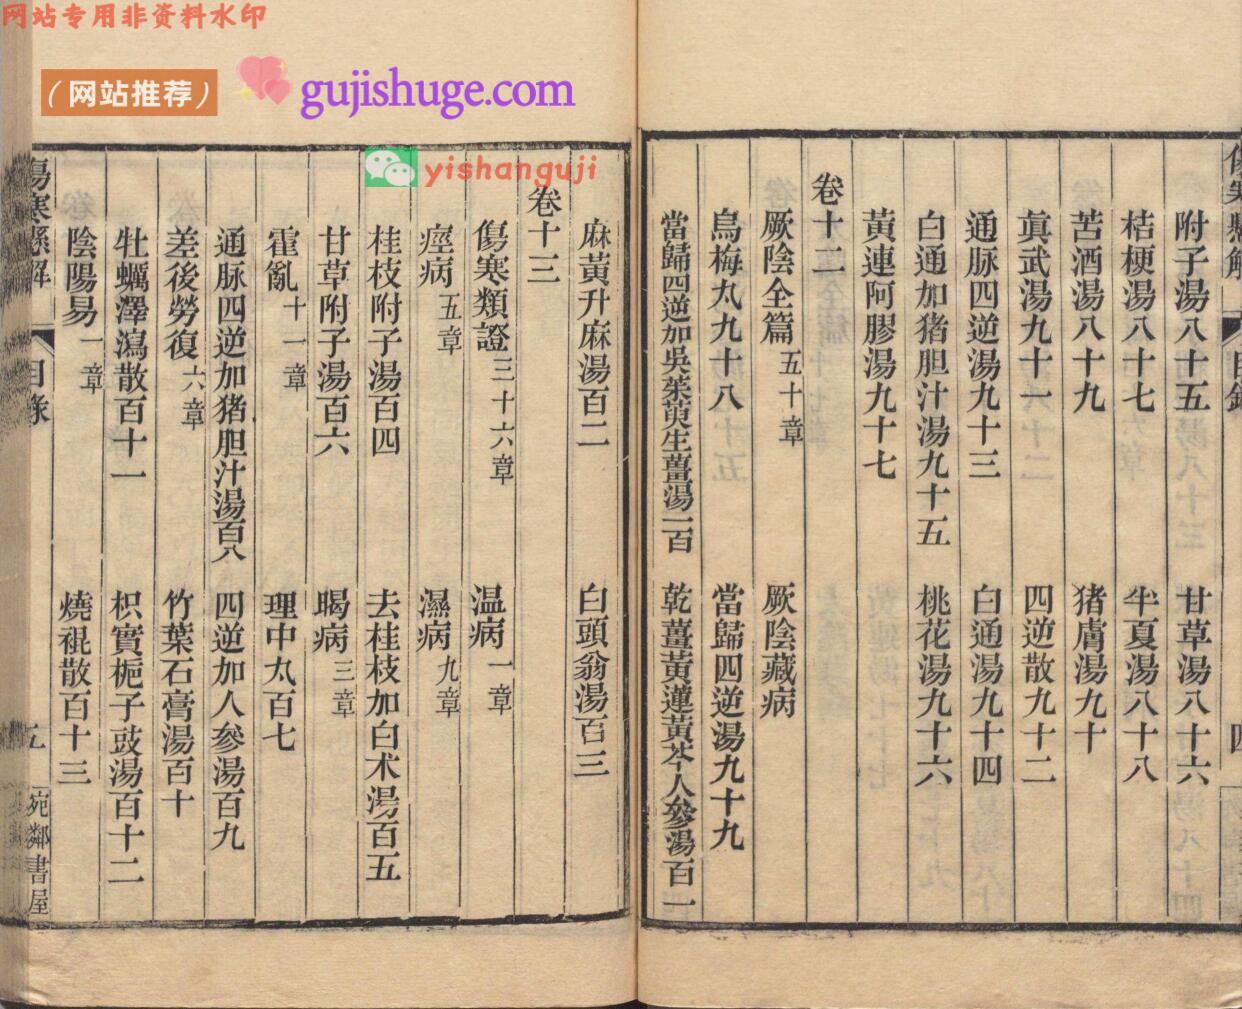 网站专用非资料水印
（网站推荐）
gujishuge.com
yishanguji
附子湯八十五 甘草湯八十六
桔梗湯八十七 半夏湯八十八
苦酒湯八十九 猪膚湯九十
眞武湯九十一 四逆散九十二
通脉四逆湯九十三 白通湯九十四
白通加猪胆汁湯九十五 桃花湯九十六
黃連阿膠湯九十七
卷十二
厥陰全篇五十章 厥陰藏病
烏梅丸九十八 當歸四逆湯九十九
當歸四逆加吳茱萸生薑湯一百 乾薑黃連黃芩人參湯百一
麻黃升麻湯百二 白頭翁湯百三
卷十三
傷寒類證三十六章 温病一章
痙病五章 濕病九章
桂枝附子湯百四 去桂枝加白术湯百五
甘草附子湯百六 暍病三章
霍亂十一章 理中丸百七
通脉四逆加猪胆汁湯百八 四逆加人參湯百九
差後勞復六章 竹葉石膏湯百十
牡蠣澤瀉散百十一 枳實梔子豉湯百十二
陰陽易一章 燒裩散百十三
傷寒懸解 目錄 五 宛鄰書屋